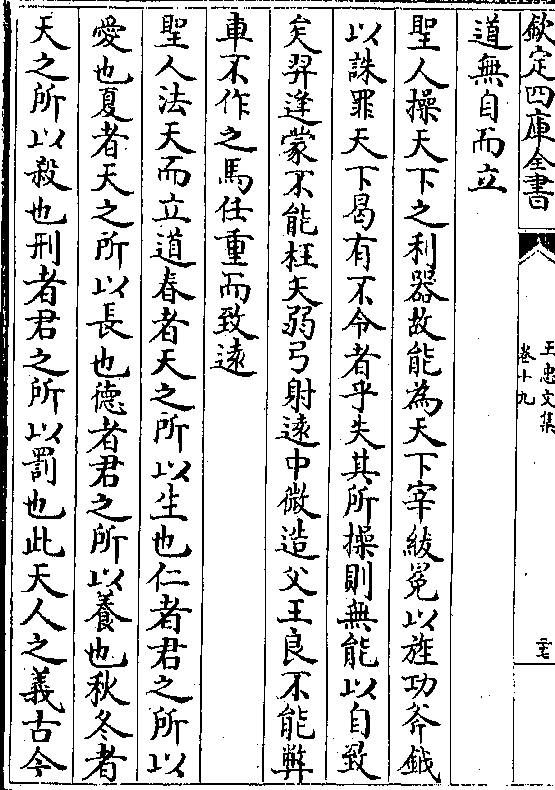 欽定四庫全書
王忠文集
卷十九
二十七
道無自而立
聖人操天下之利器故能為天下宰紱冕以旌功斧鉞
以誅罪天下曷有不令者乎失其所操則無能以自致
矣羿逢蒙不能枉矢弱弓射遠中微造父王良不能弊
車不作之馬任重而致遠
聖人法天而立道春者天之所以生也仁者君之所以
愛也夏者天之所以長也德者君之所以養也秋冬者
天之所以殺也刑者君之所以罰也此天人之義古今